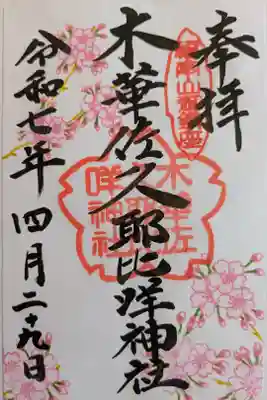 奉拝
木華佐久耶比咩神社
令和七年 四月二十九日
木華佐
久耶比
咩神社